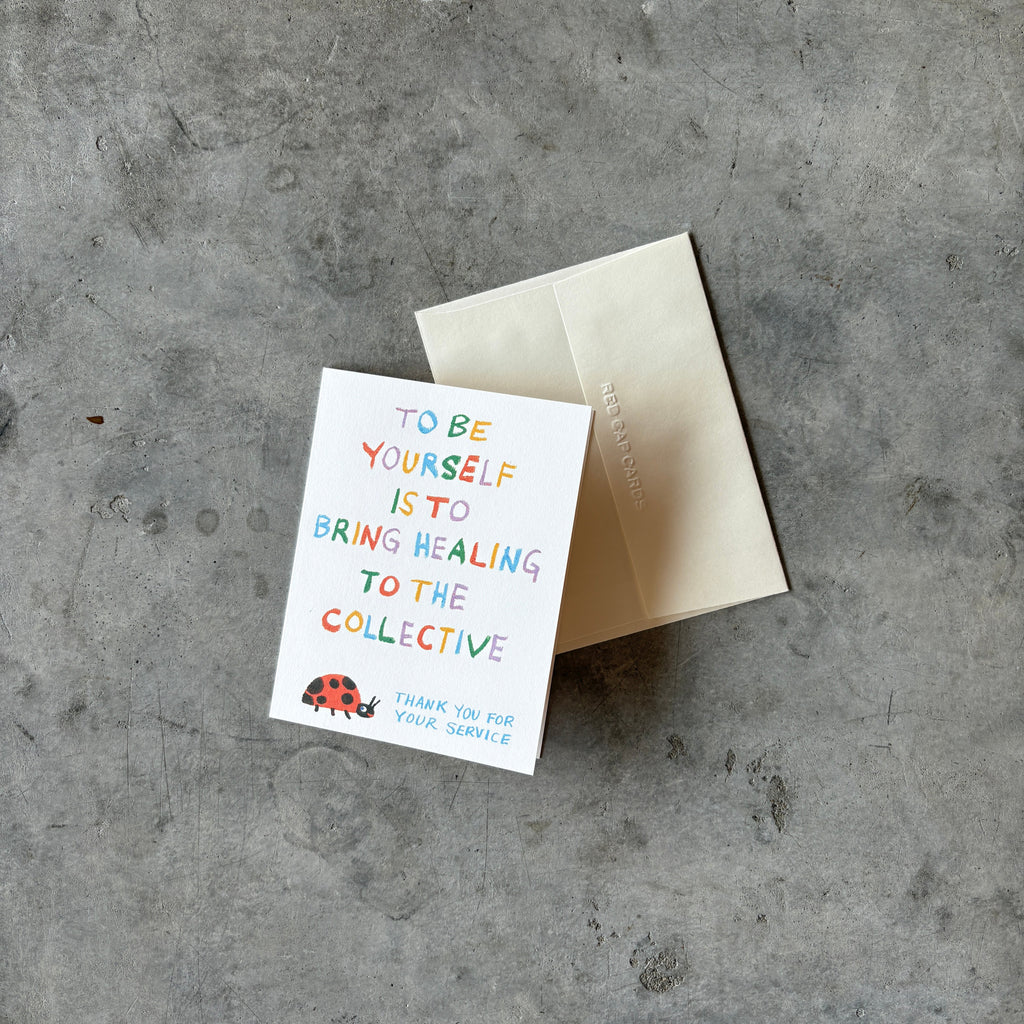 TO BE
YOURSELF
IS TO
BRING HEALING
TO THE
COLLECTIVE
THANK YOU FOR
YOUR SERVICE
RED CAP CARDS